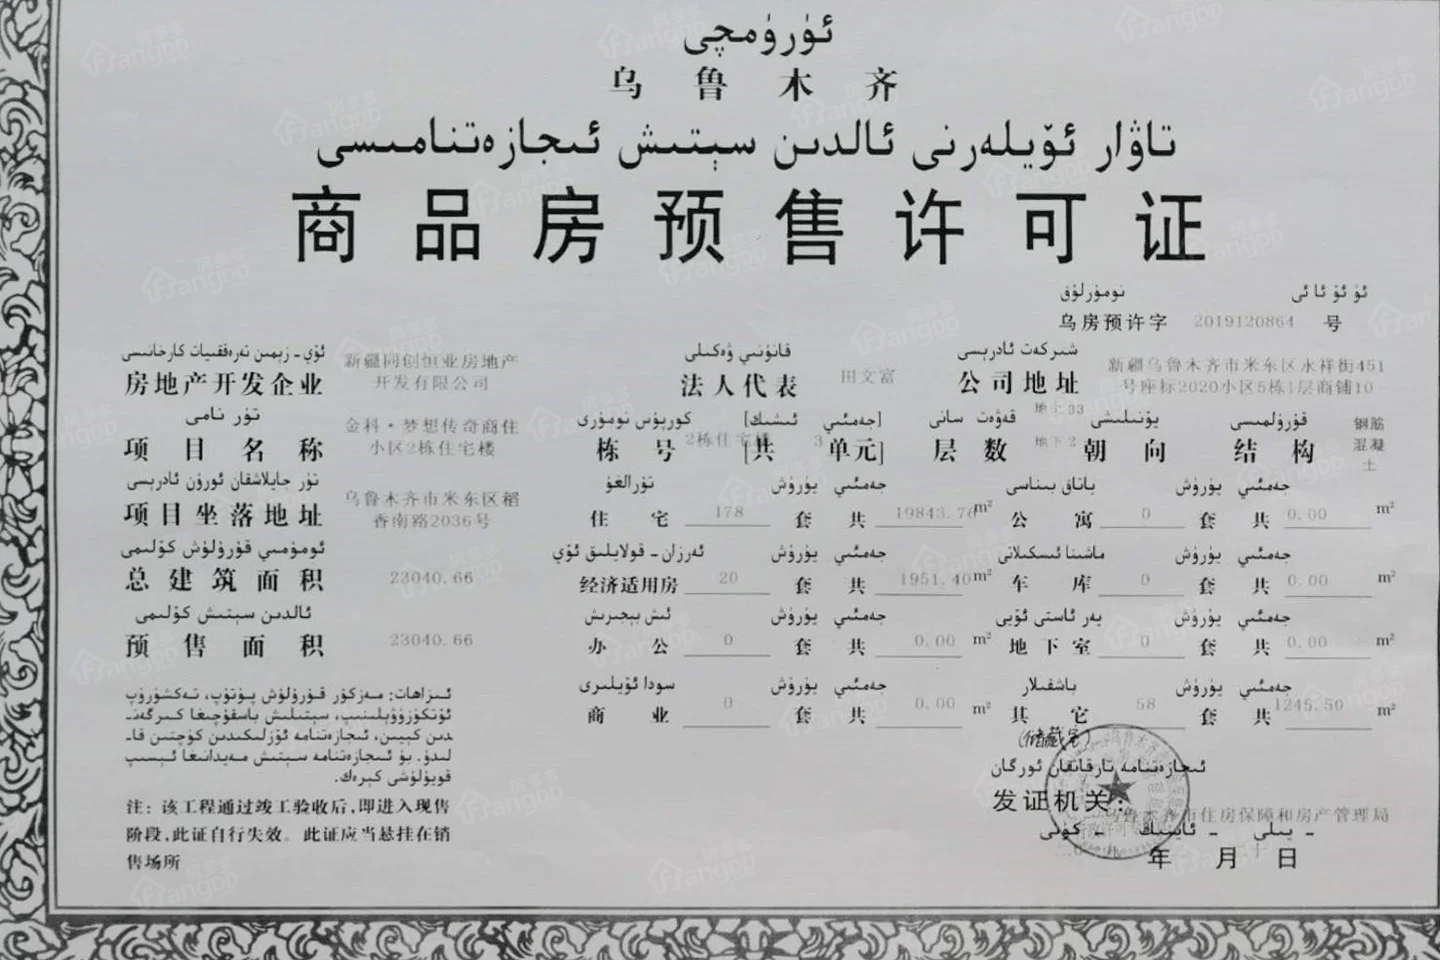 ئۈرۈمچى
乌鲁木齐
تاۋار ئۆيلەرنى ئالدىن سېتىش ئىجازەتنامىسى
商品房预售许可证
ئۈ ئۆ ئا ئى نومۇرلۇق
乌房预许字 2019120864 号
ئۆي - زېمىن تەرەققىيات كارخانىسى
房地产开发企业 新疆同创恒业房地产开发有限公司
قانۇنىي ۋەكىلى
法人代表 田文富
شىركەت ئادرېسى
公司地址 新疆乌鲁木齐市米东区永祥街451号座标2020小区5栋1层商铺10
تۈر نامى
项目名称 金科·梦想传奇商住小区2栋住宅楼
كورپۇس نومۇرى [جەمئىي ئىشىك]
栋号 2栋住宅楼 [共 3 单元]
قەۋەت سانى
层数 地上33 地下2
يۆنىلىشى
朝向
قۇرۇلمىسى
结构 钢筋混凝土
تۈر جايلاشقان ئورۇن ئادرېسى
项目坐落地址 乌鲁木齐市米东区稻香南路2036号
تۇرالغۇ يۈرۈش جەمئىي
住宅 178 套 共 19843.76 m²
ياتاق بىناسى يۈرۈش جەمئىي
公寓 0 套 共 0.00 m²
ئومۇمىي قۇرۇلۇش كۆلىمى
总建筑面积 23040.66
ئەرزان - قولايلىق ئۆي يۈرۈش جەمئىي
经济适用房 20 套 共 1951.40 m²
ماشىنا ئىسكىلاتى يۈرۈش جەمئىي
车库 0 套 共 0.00 m²
ئالدىن سېتىش كۆلىمى
预售面积 23040.66
ئىش بېجىرىش يۈرۈش جەمئىي
办公 0 套 共 0.00 m²
يەر ئاستى ئۆيى يۈرۈش جەمئىي
地下室 0 套 共 0.00 m²
سودا ئۆيلىرى يۈرۈش جەمئىي
商业 0 套 共 0.00 m²
باشقىلار يۈرۈش جەمئىي
其它 58 套 共 1245.50 m²
(储藏室)
ئىزاھات: مەزكۇر قۇرۇلۇش پۈتۈپ، تەكشۈرۈپ
ئۆتكۈزۈۋېلىنىپ، سېتىلىش باسقۇچىغا كىرگەن-
دىن كېيىن، ئىجازەتنامە ئۆزلىكىدىن كۈچتىن قا-
لىدۇ. بۇ ئىجازەتنامە سېتىش مەيدانىغا ئېسىپ
قويۇلۇشى كېرەك.
注：该工程通过竣工验收后，即进入现售
阶段，此证自行失效。此证应当悬挂在销
售场所
ئىجازەتنامە تارقاتقان ئورگان
发证机关：乌鲁木齐市住房保障和房产管理局
- يىلى - ئاينىڭ - كۈنى
年 月 日